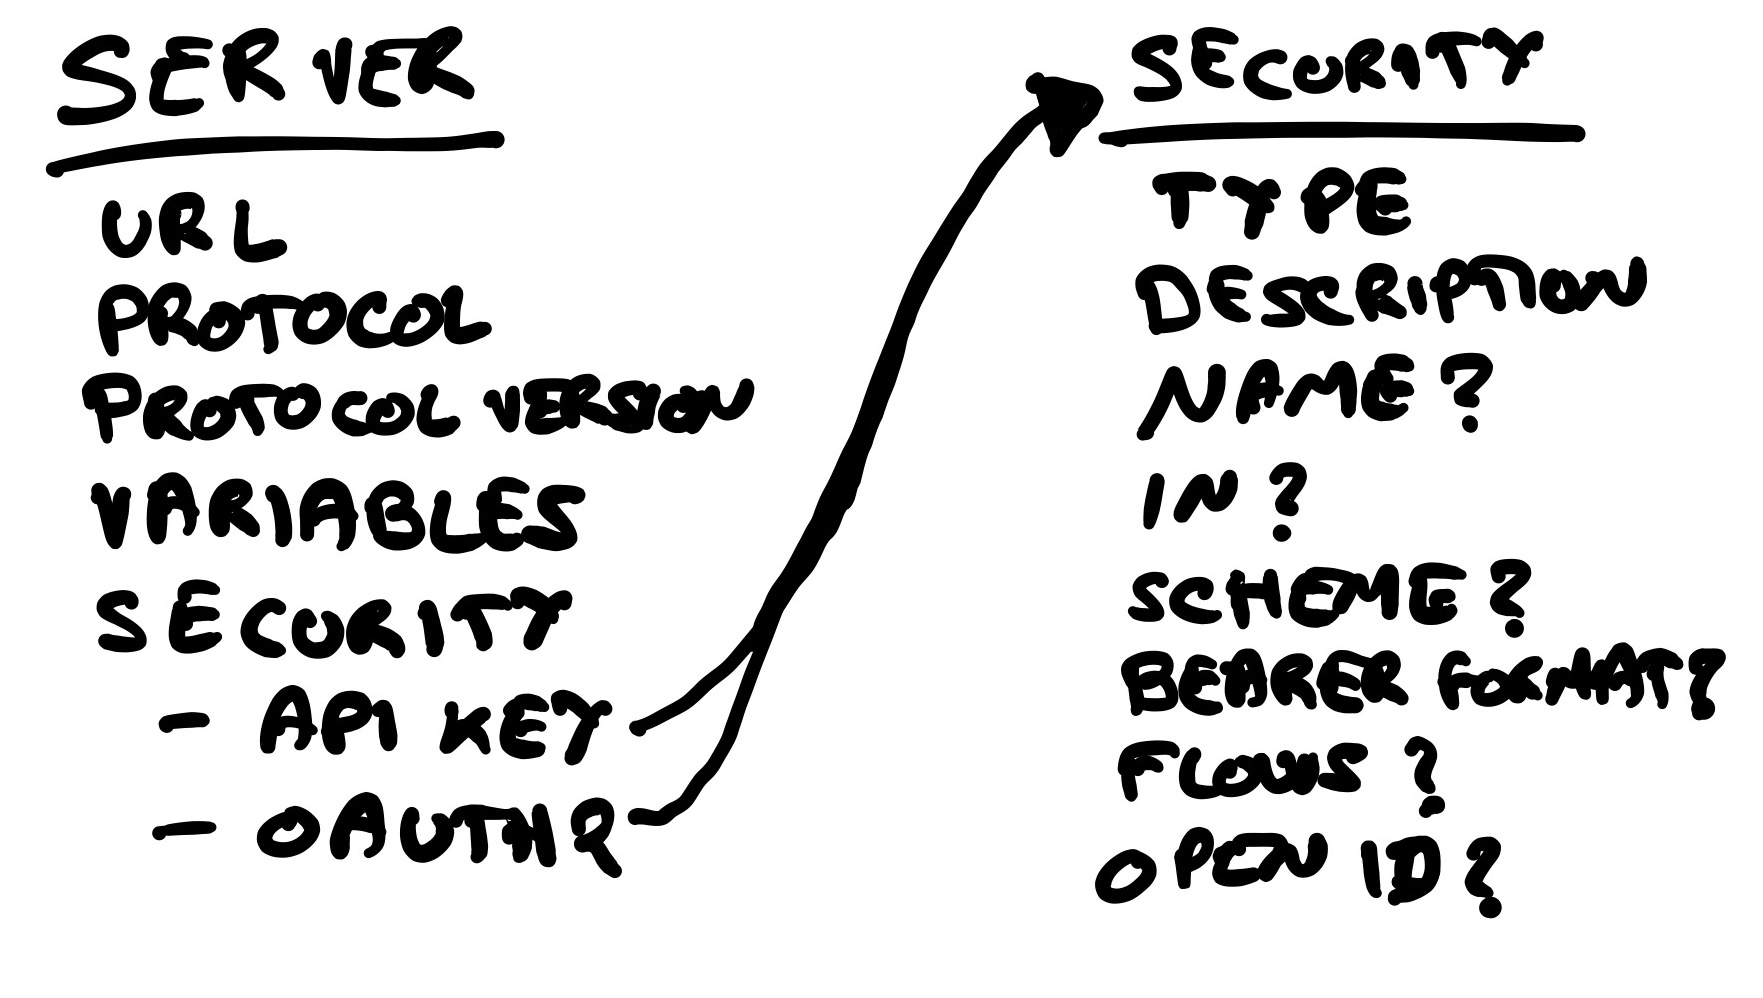 SERVER
URL
PROTOCOL
PROTOCOL VERSION
VARIABLES
SECURITY
- API KEY
- OAUTH2
SECURITY
TYPE
DESCRIPTION
NAME?
IN?
SCHEME?
BEARER FORMAT?
FLOWS?
OPEN ID?